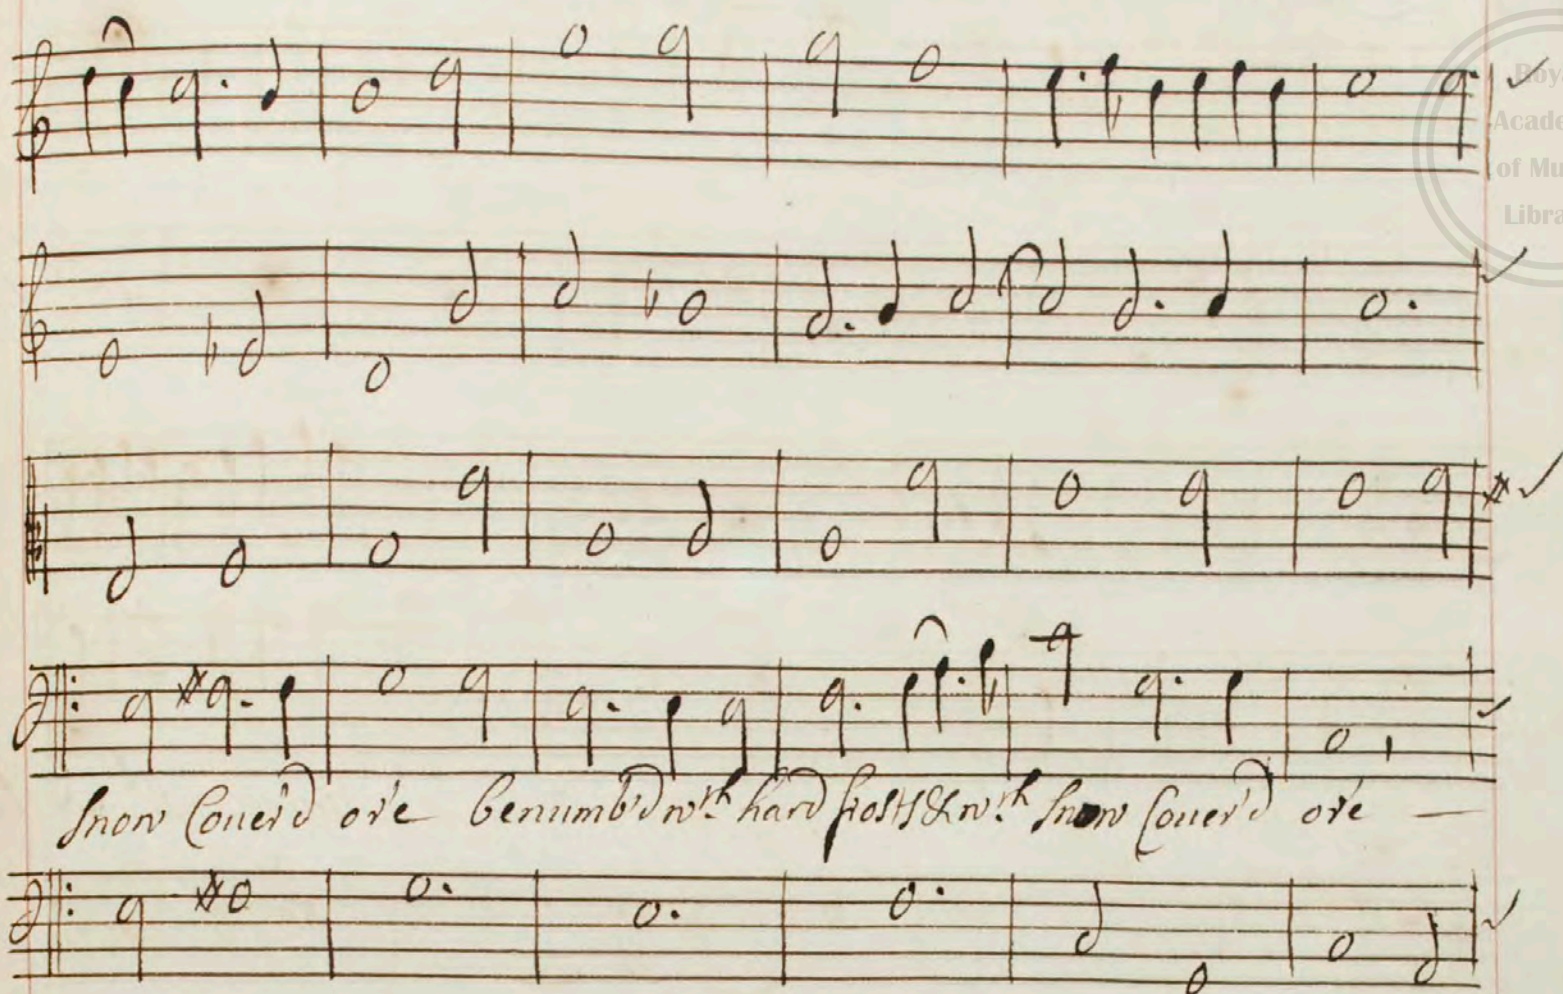 Roy
Acade
of Mu
Libra
Snow Couer'd ore benumb'd wth. hard frosts & wth. Snow Couer'd ore —